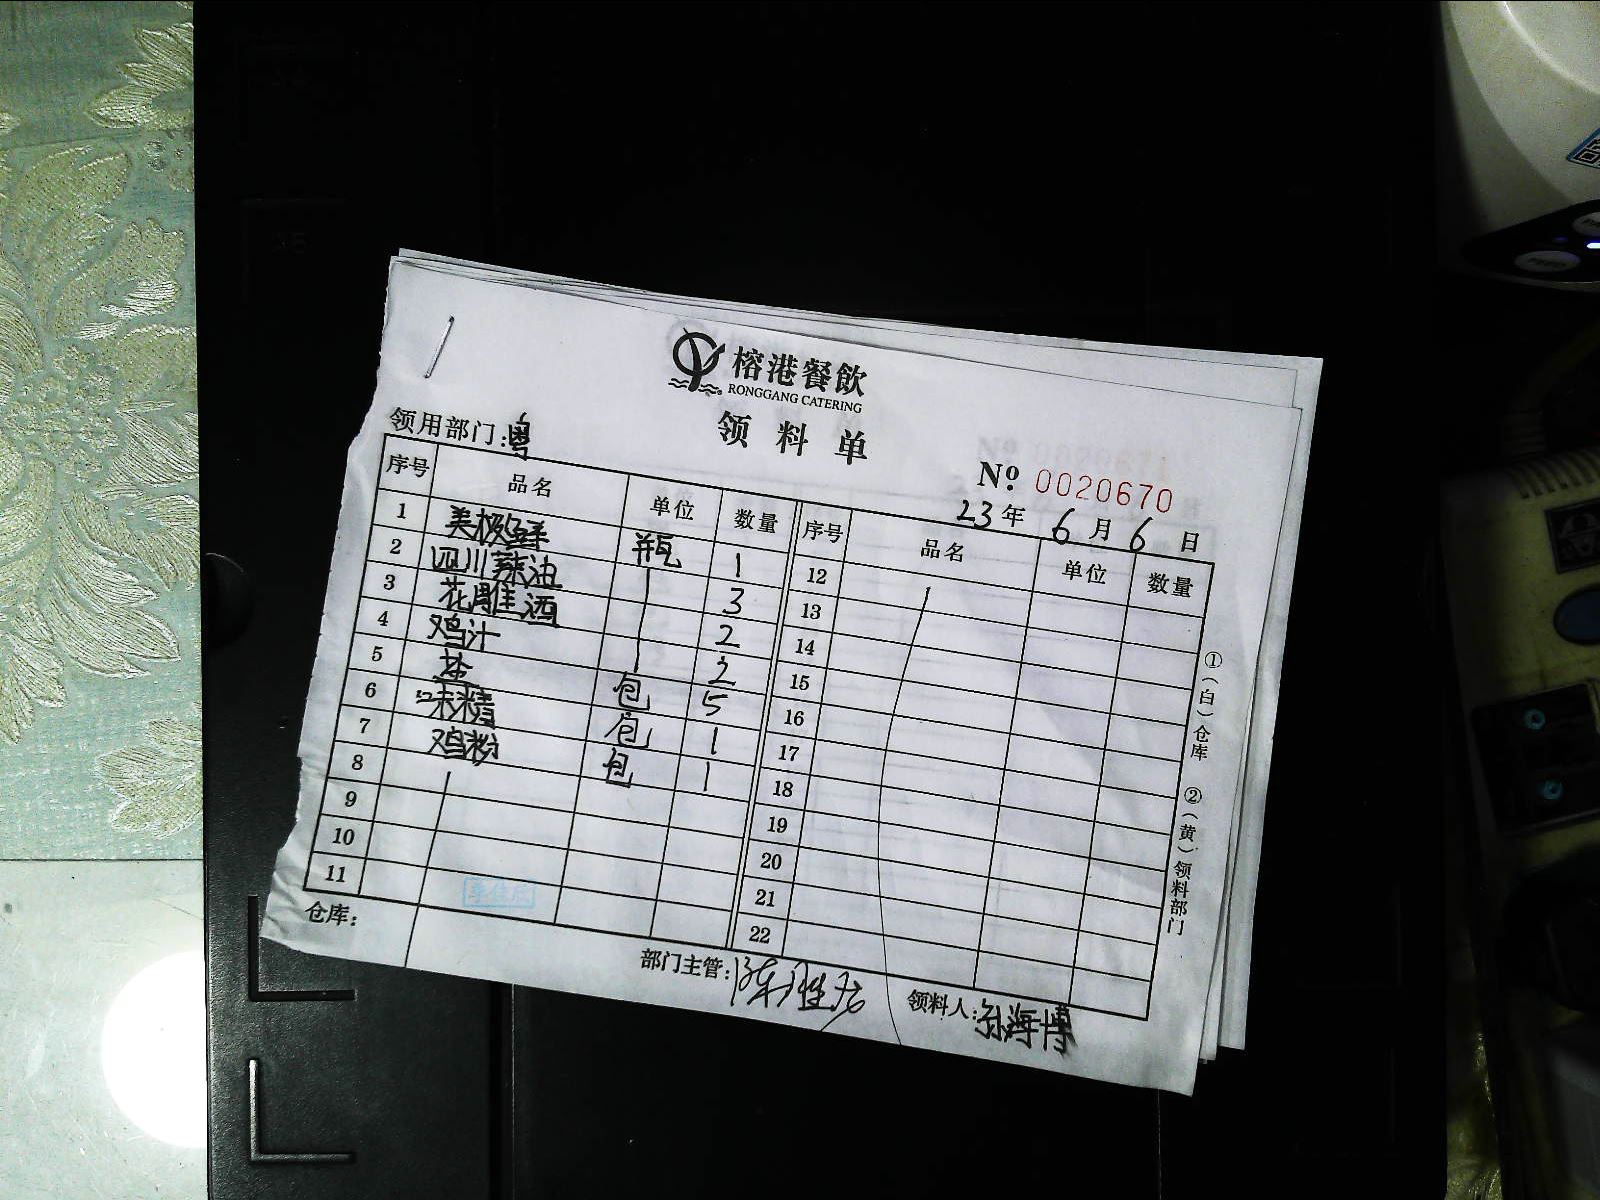 榕港餐飲
RONGGANG CATERING
领料单
领用部门:粤
№ 0020670
23年 6月 6日
序号 品名 单位 数量 序号 品名 单位 数量
1 美极鲜 瓶 1 12
2 四川辣油 | 3 13
3 花雕酒 | 2 14
4 鸡汁 | 2 15
5 盐 包 5 16
6 味精 包 1 17
7 鸡粉 包 1 18
8 19
9 20
10 21
11 22
①(白)仓库 ②(黄)领料部门
仓库:
部门主管: 领料人:孙海博